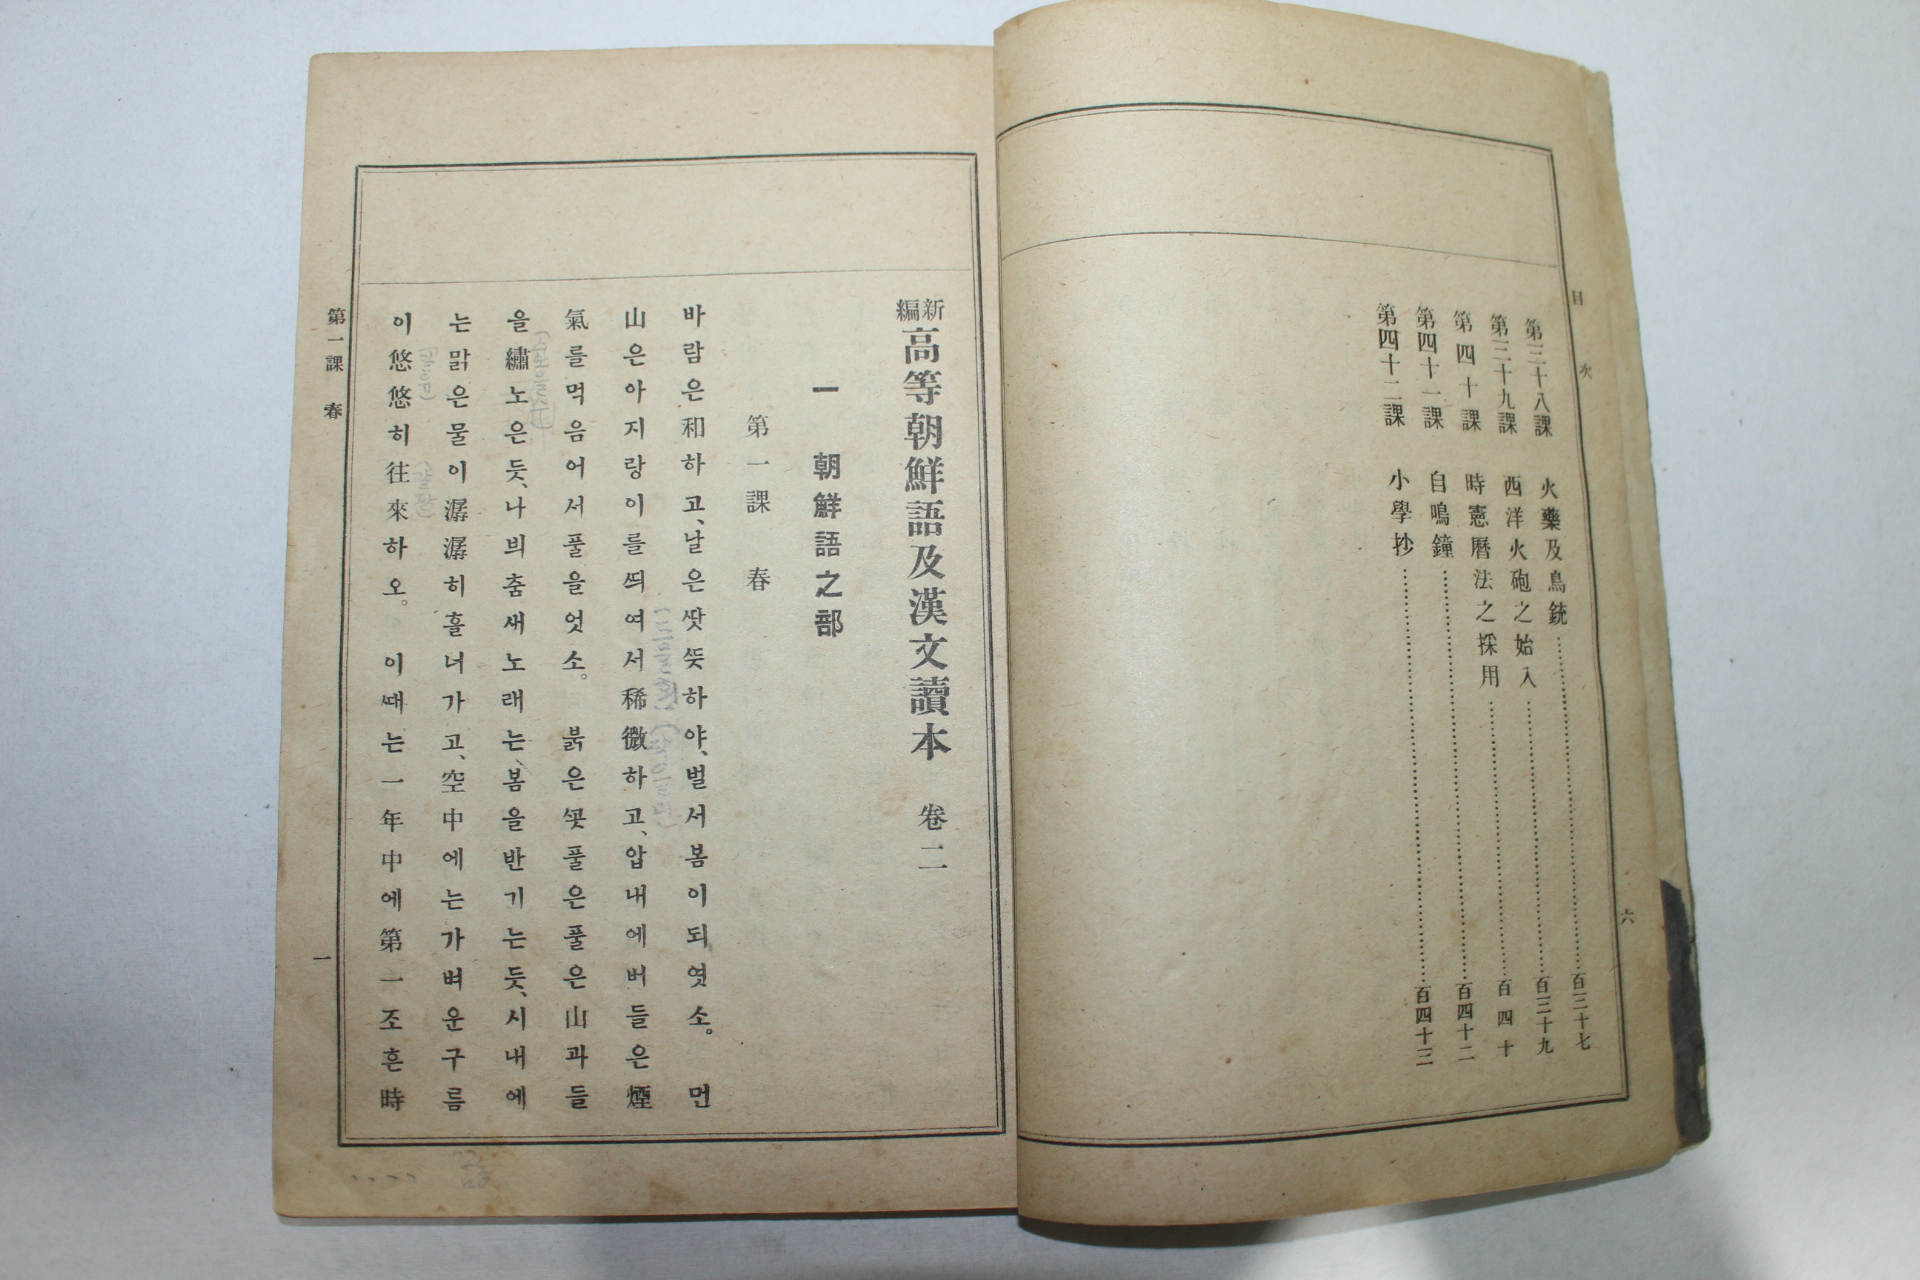 目次
六
第三十八課 火藥及鳥銃 百三十七
第三十九課 西洋火砲之始入 百三十九
第四十課 時憲曆法之採用 百四十
第四十一課 自鳴鐘 百四十二
第四十二課 小學抄 百四十三
新編 高等朝鮮語及漢文讀本 卷二
一 朝鮮語之部
第一課 春
바람은和하고、날은ᄯᅡᆺᄯᅳᆺ하야、벌서봄이되엿소。 먼
山은아지랑이를ᄯᅴ여서稀微하고、압내에버들은煙
氣를먹음어서풀을엇소。 붉은ᄭᅩᆺ풀은풀은山과들
을繡노은듯、나븨춤새노래는、봄을반기는듯、시내에
는맑은물이潺潺히흘너가고、空中에는가벼운구름
이悠悠히往來하오。 이ᄯᅢ는一年中에第一조흔時
第一課 春
一